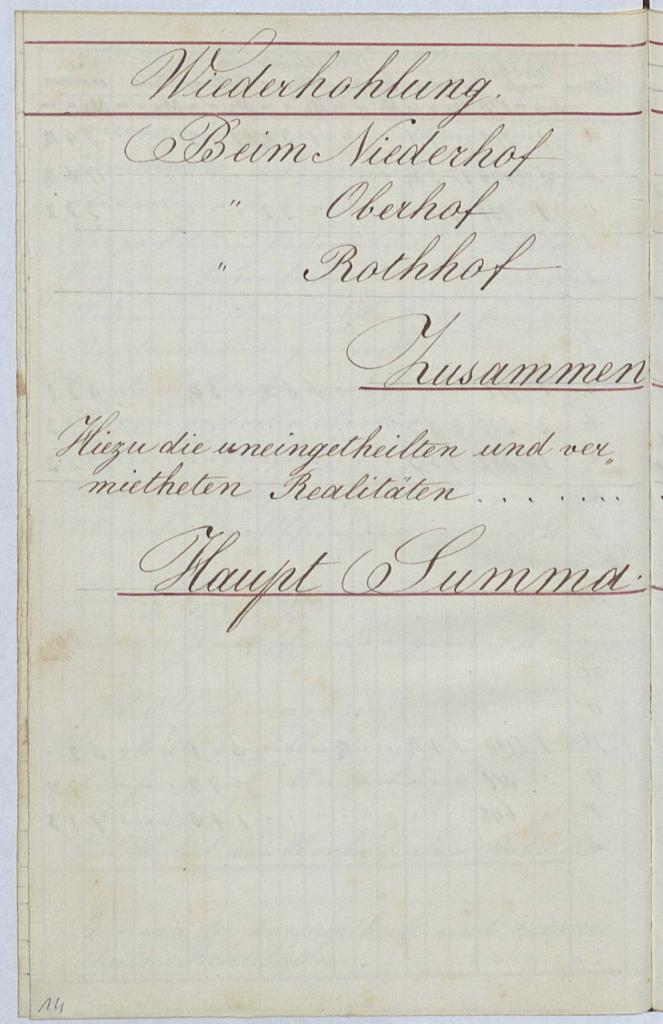 Wiederhohlung.
Beim Niederhof
" Oberhof
" Rothhof
Zusammen
Hiezu die uneingetheilten und ver„
mietheten Realitäten . . . . . . .
Haupt Summa.
14